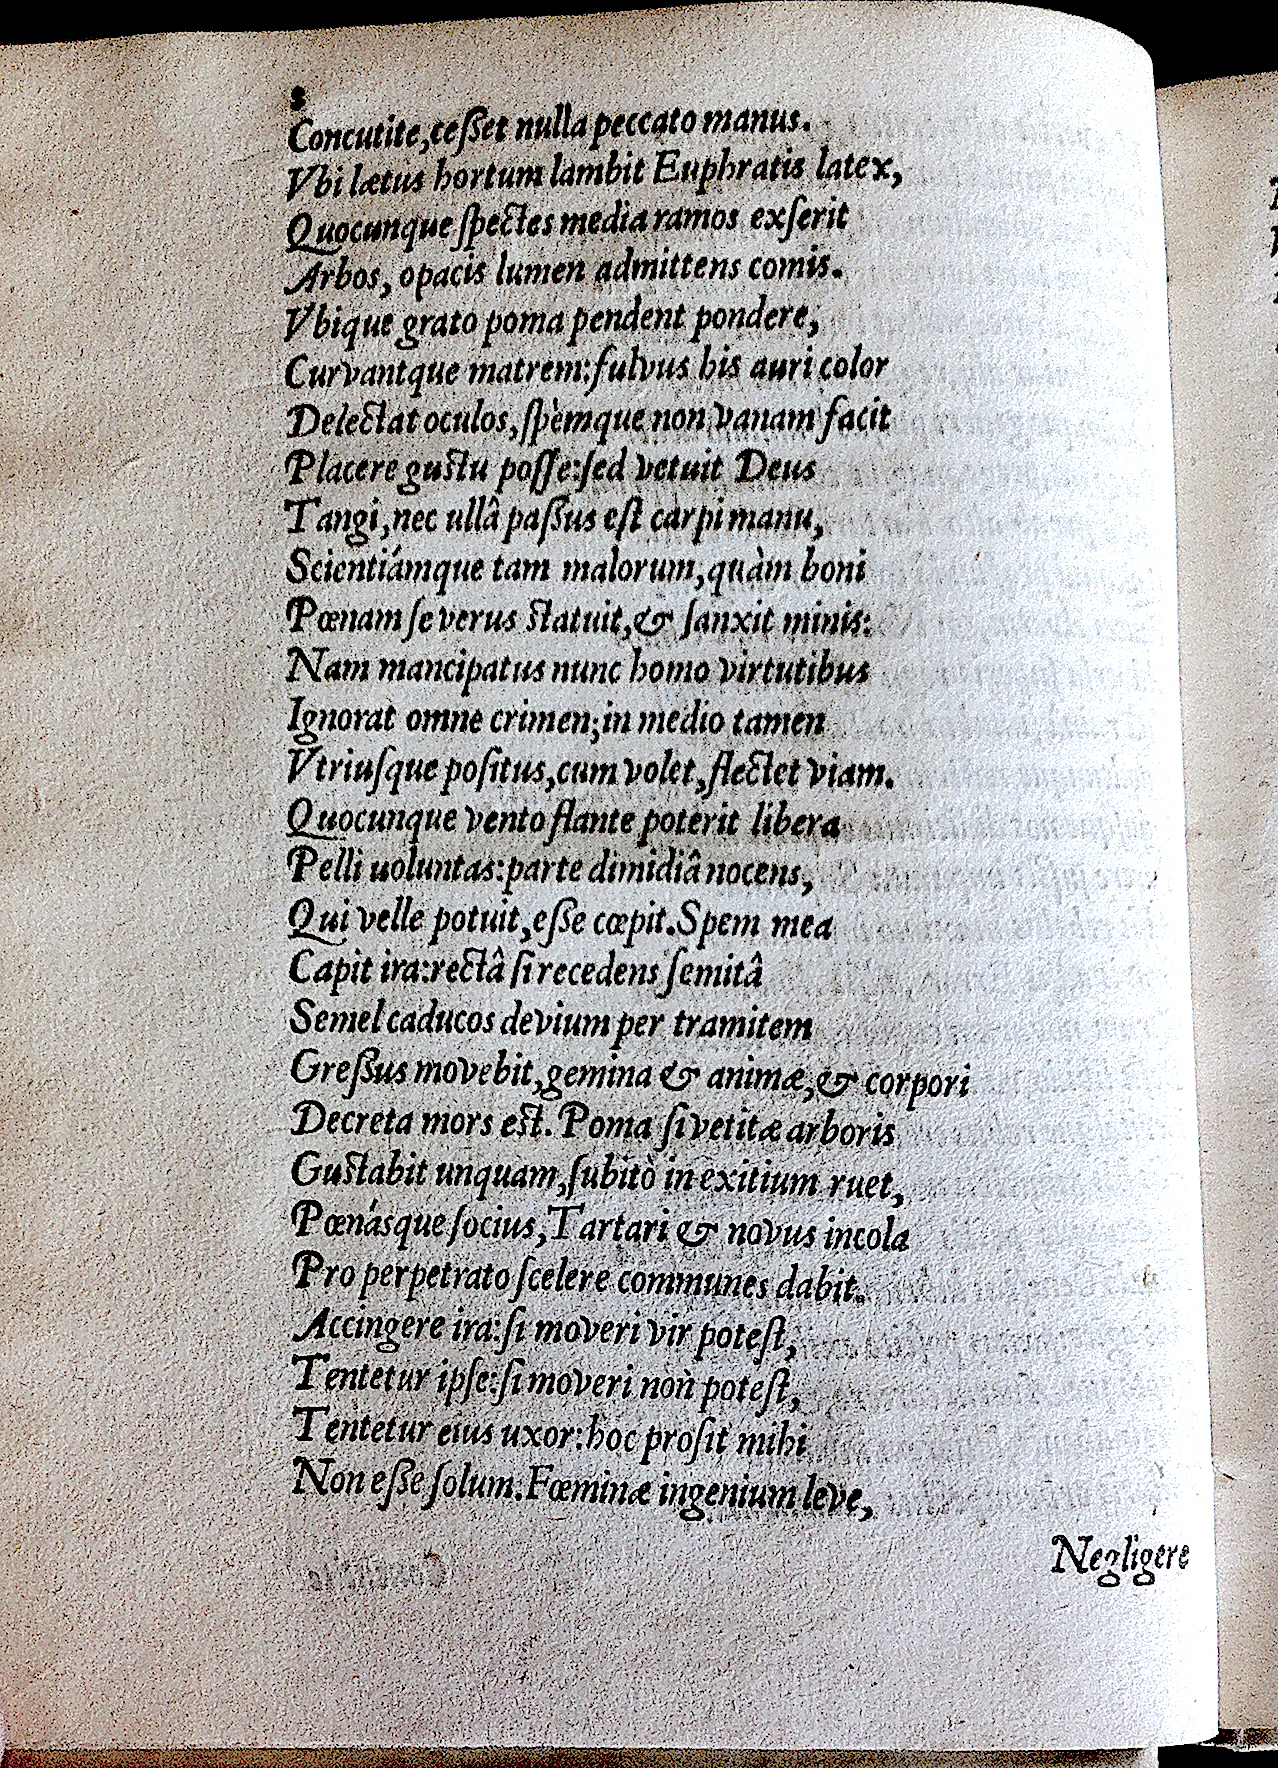 8
Concutite, cesset nulla peccato manus.
Vbi lætus hortum lambit Euphratis latex,
Quocunque spectes media ramos exserit
Arbos, opacis lumen admittens comis.
Vbique grato poma pendent pondere,
Curvantque matrem: fulvus his auri color
Delectat oculos, spèmque non vanam facit
Placere gustu posse: sed vetuit Deus
Tangi, nec ullâ passus est carpi manu,
Scientiámque tam malorum, quàm boni
Pœnam severus statuit, & sanxit minis:
Nam mancipatus nunc homo virtutibus
Ignorat omne crimen; in medio tamen
Vtriusque positus, cum volet, flectet viam.
Quocunque vento flante poterit libera
Pelli uoluntas: parte dimidiâ nocens,
Qui velle potuit, esse cœpit. Spem mea
Capit ira: rectâ si recedens semitâ
Semel caducos devium per tramitem
Gressus movebit, gemina & animæ, & corpori
Decreta mors est. Poma si vetitæ arboris
Gustabit unquam, subitò in exitium ruet,
Pœnásque socius, Tartari & novus incola
Pro perpetrato scelere communes dabit.
Accingere ira: si moveri vir potest,
Tentetur ipse: si moveri non potest,
Tentetur eius uxor: hoc prosit mihi
Non esse solum. Fœminæ ingenium leve,
Negligere